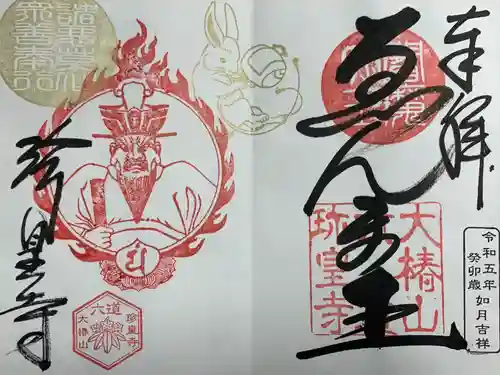 奉拝
ゑんま王
大椿山
珎皇寺
令和五年如月吉祥
癸卯歳
諸悪莫作
衆善奉行
珎皇寺
六道
珍皇寺
大椿山